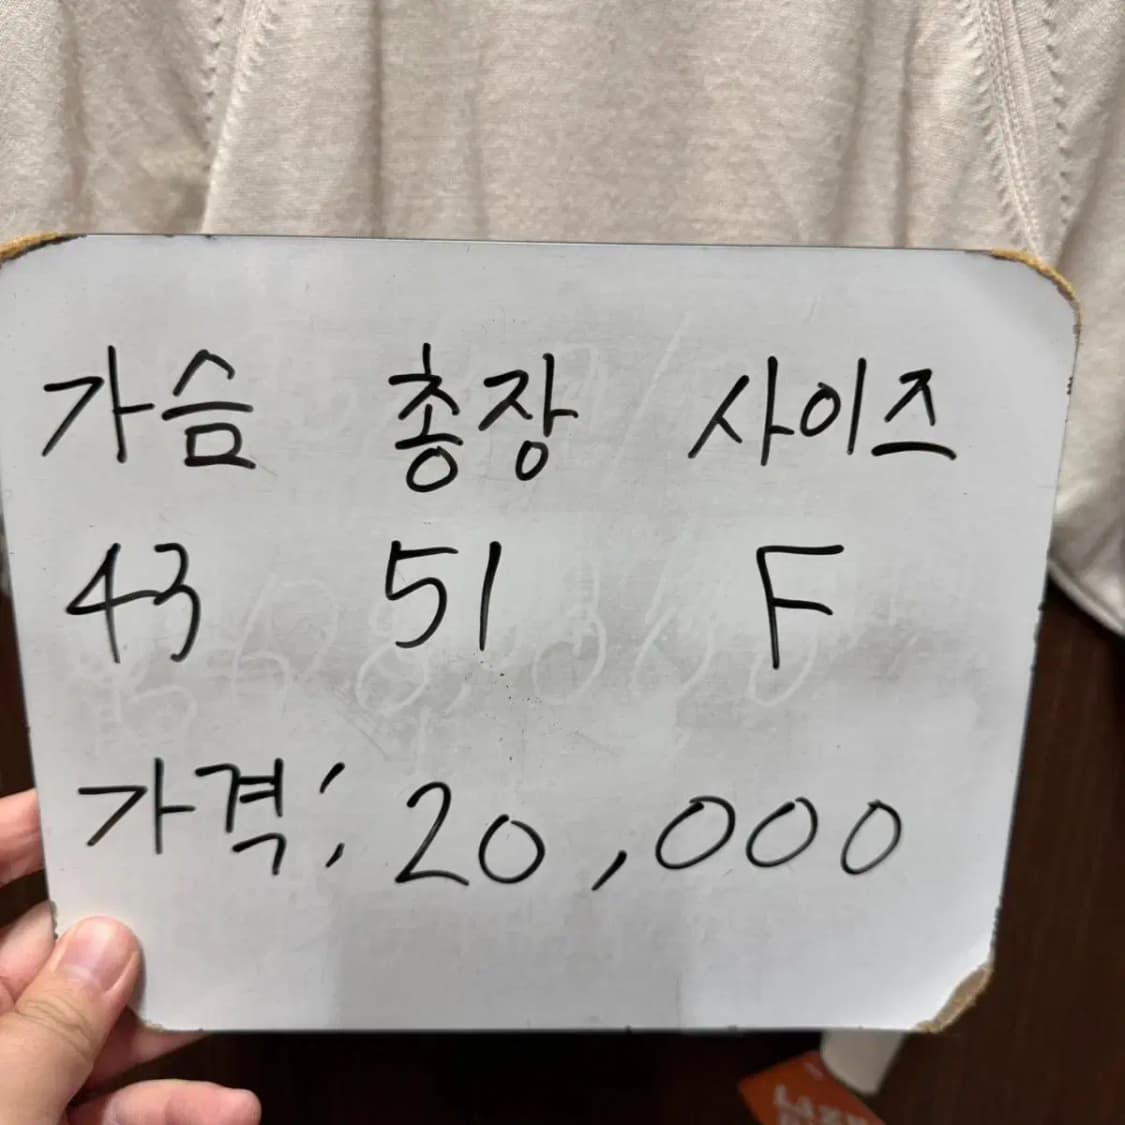 가슴 총장 사이즈
43 51 F
가격: 20,000